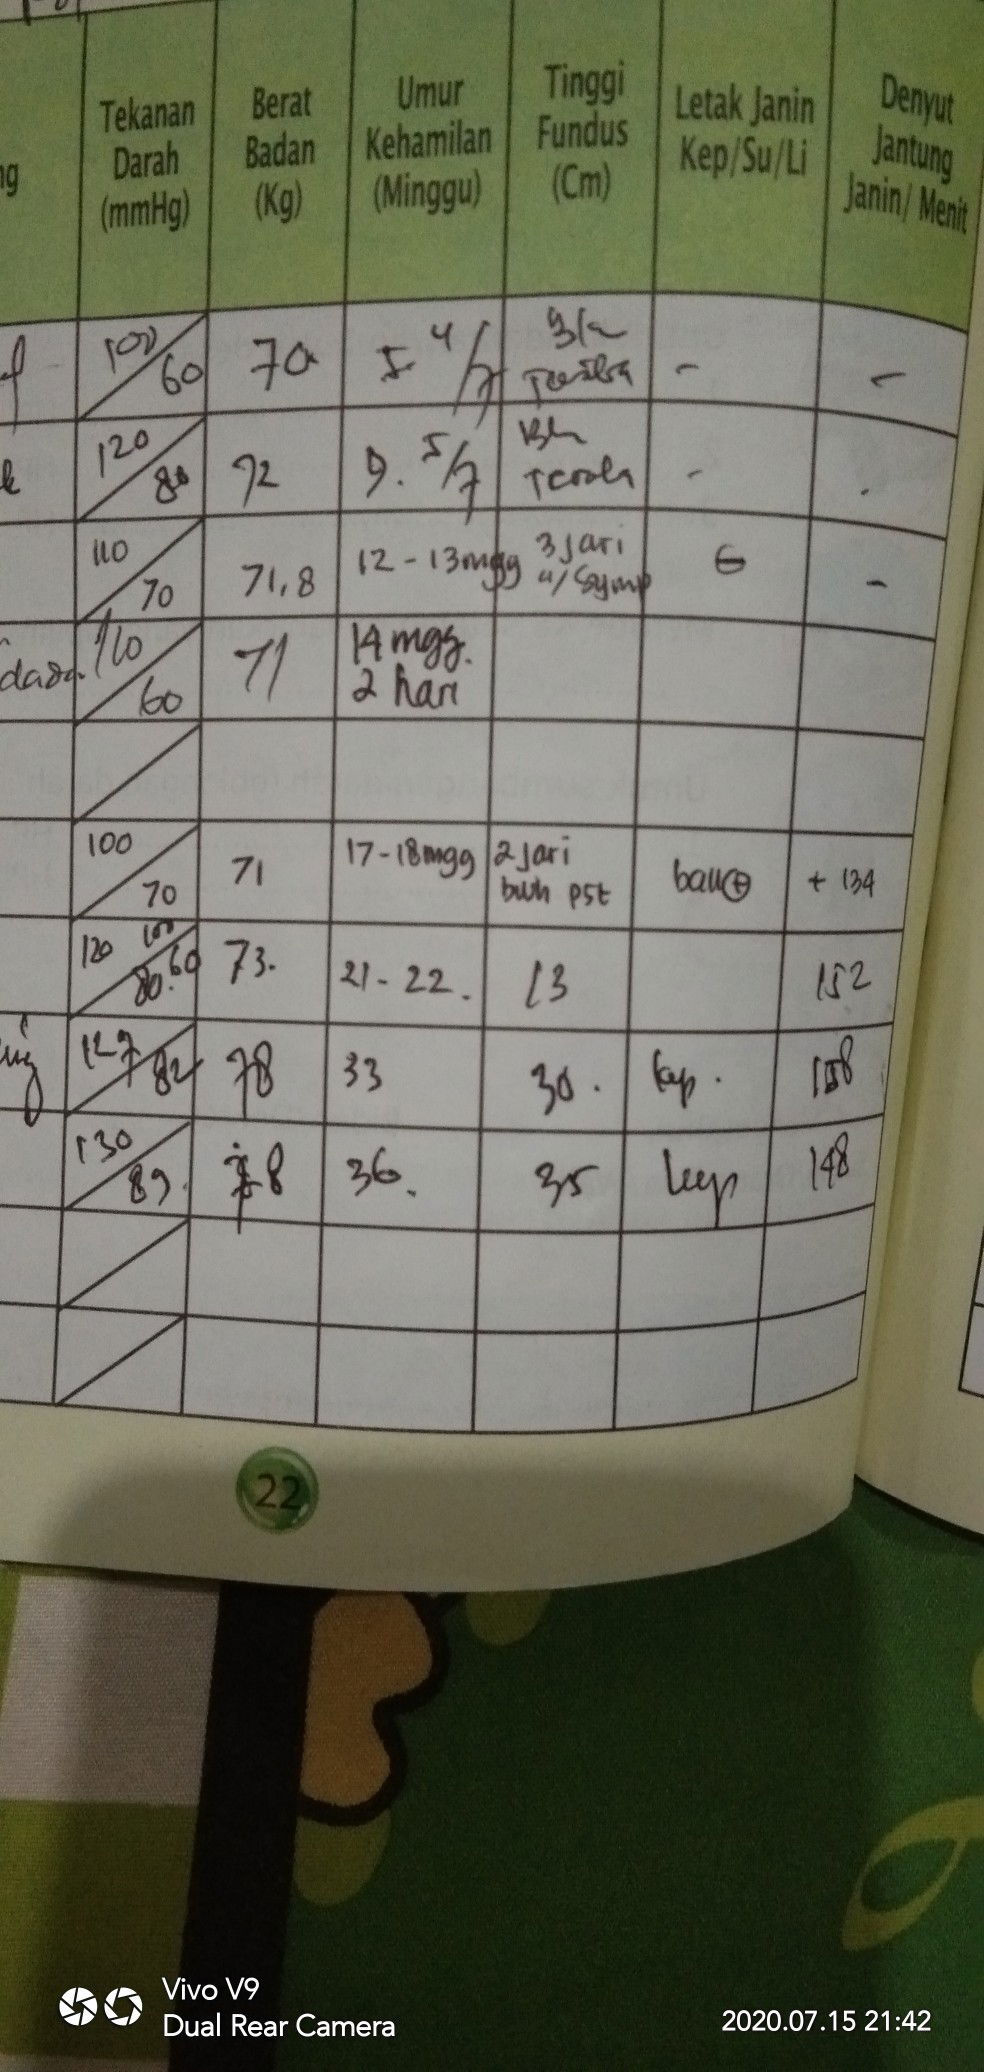 Tekanan Darah (mmHg) Berat Badan (Kg) Umur Kehamilan (Minggu) Tinggi Fundus (Cm) Letak Janin Kep/Su/Li Denyut Jantung Janin/ Menit
100/60 70 5 4/7 - -
120/80 72 9. 5/7 - .
110/70 71,8 12 - 13 mgg 3 jari a/ Symp -
110/60 71 14 mgg. 2 hari
100/70 71 17-18 mgg 2 jari bwh pst + 134
120/80. 100/60 73. 21 - 22. 13 152
127/82 78 33 30. kep.
130/89. 78 36. 35 kep 148
22
Vivo V9
Dual Rear Camera
2020.07.15 21:42